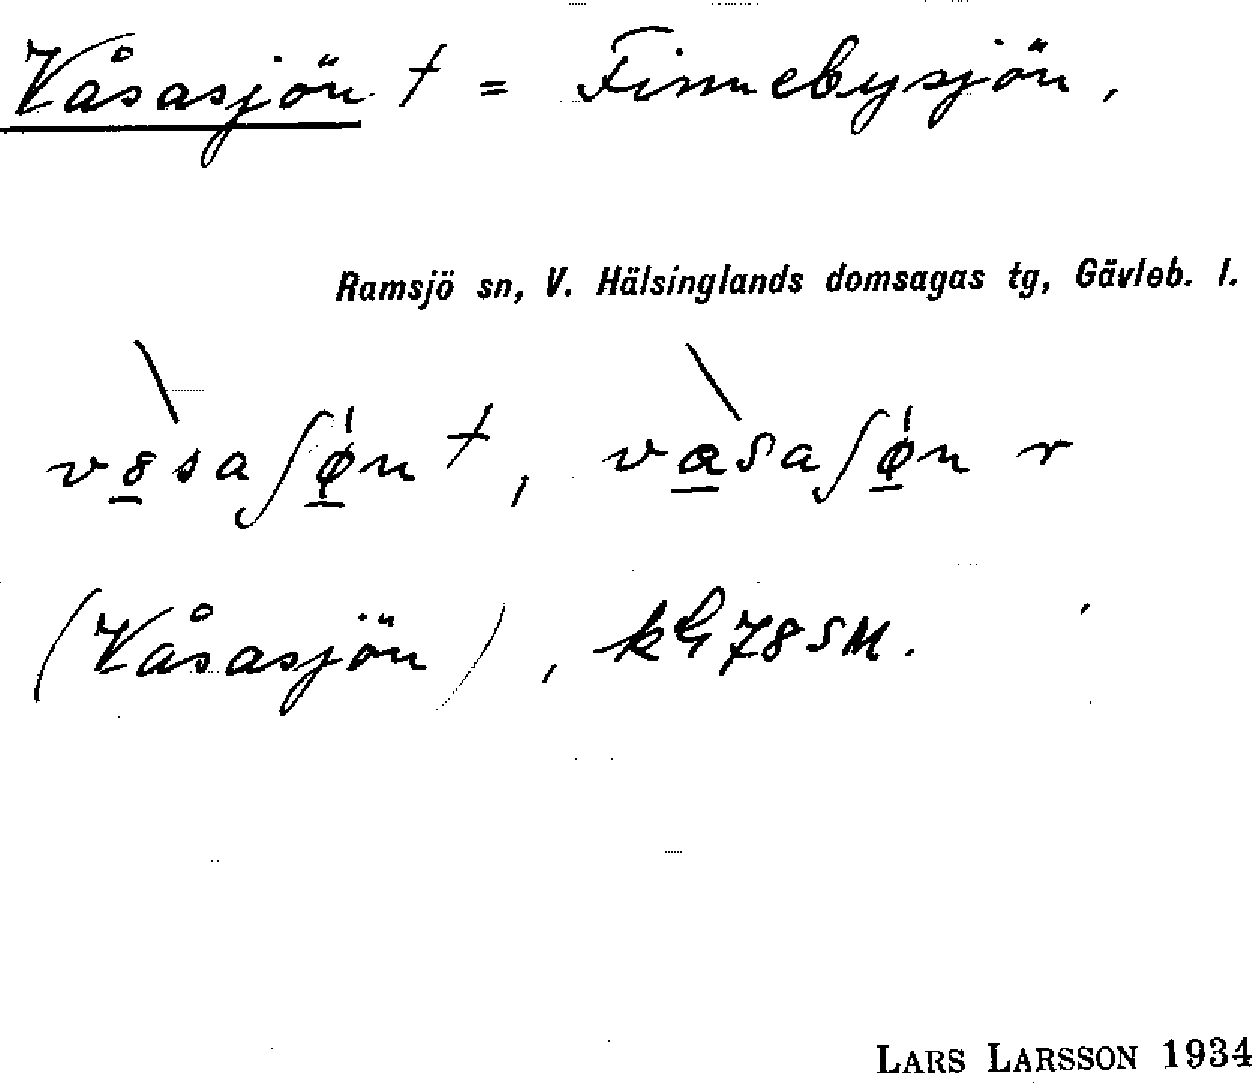 Våsasjön † = Finnebysjön,
Ramsjö sn, V. Hälsinglands domsagas tg, Gävleb. l.
v8saʃøn †, vasaʃøn r
(Våsasjön), kG 78 SM.
LARS LARSSON 1934